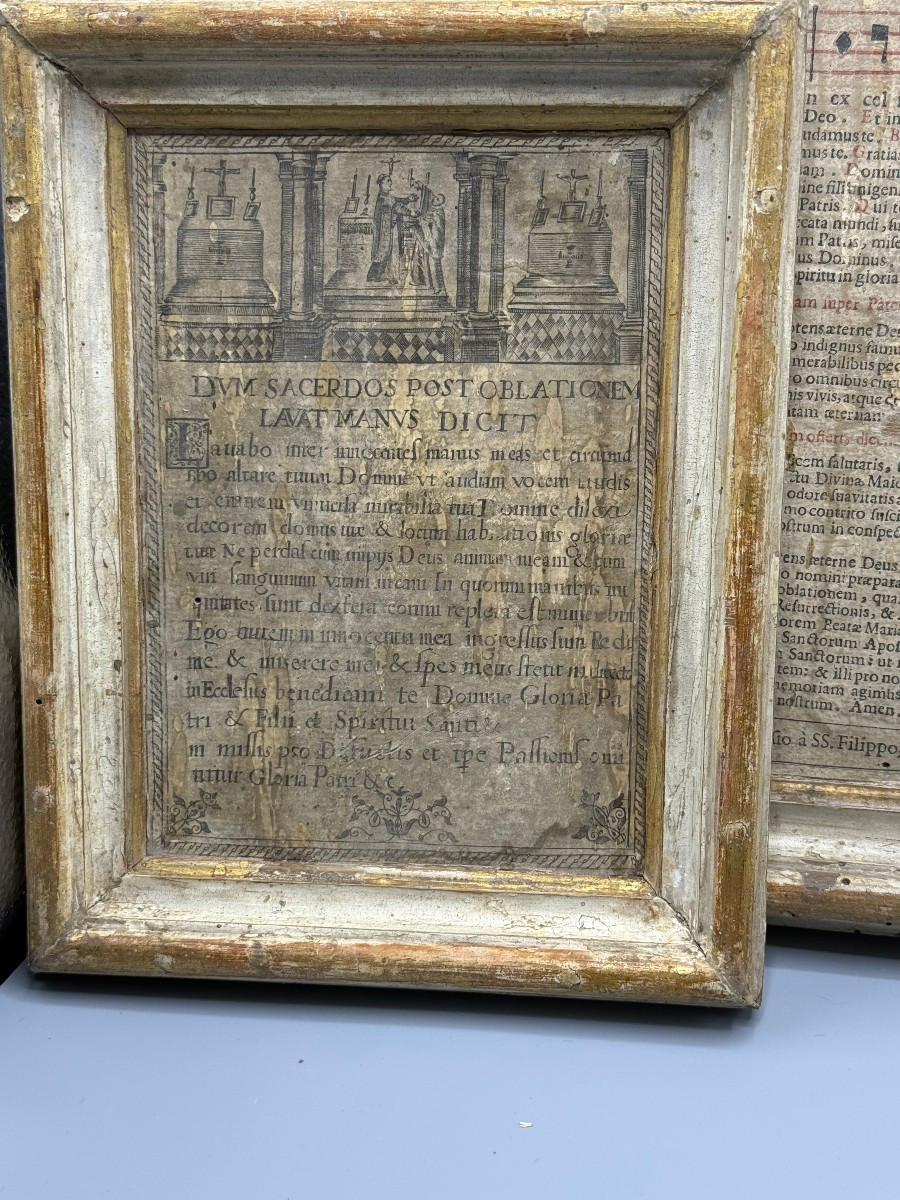 DVM SACERDOS POST OBLATIONEM
LAVAT MANVS DICIT
Lavabo inter innocentes manus meas et circumd
abo altare tuum Domine vt audiam vocem laudis
et enarrem vniuersa mirabilia tua Domine dilexi
decorem domus tuæ & locum habitationis gloriæ
tuæ Ne perdas cum impijs Deus animam meam & cum
viri sanguinum vitam meam In quorum manibus ini
quitates sunt dextera eorum repleta est muneribus
Ego autem in innocentia mea ingressus sum Redi
me & miserere mei & spes meus stetit in directo
in Ecclesiis benedicam te Domine Gloria Pa
tri & Filii et Spiritui Sancti &
In missis pro Defunctis et tpe Passionis omi
titur Gloria Patri & c
n ex cel
Deo. Et in
udamus te. B
mus te. Gratias
iam. Domin
ine fili vnigen
Patris. Qui t
ccata mundi, su
m Patris, mise
us Dominus,
piritu in gloria
am super Pate
otens æterne De
o indignus famu
merabilibus pec
o omnibus circu
is vivis, atque
itam æternam
m offerts dici
icem salutaris,
ctu Divinæ Maie
odore suavitatis
mo contrito susci
ostrum in conspec
ens æterne Deus
o nomini præpara
oblationem, qua
Resurrectionis, &
orem Beatæ Mariæ
Sanctorum Apos
Sanctorum: ut
tem: & illi pro no
emoriam agimus
nostrum. Amen.
io à SS. Filippo,